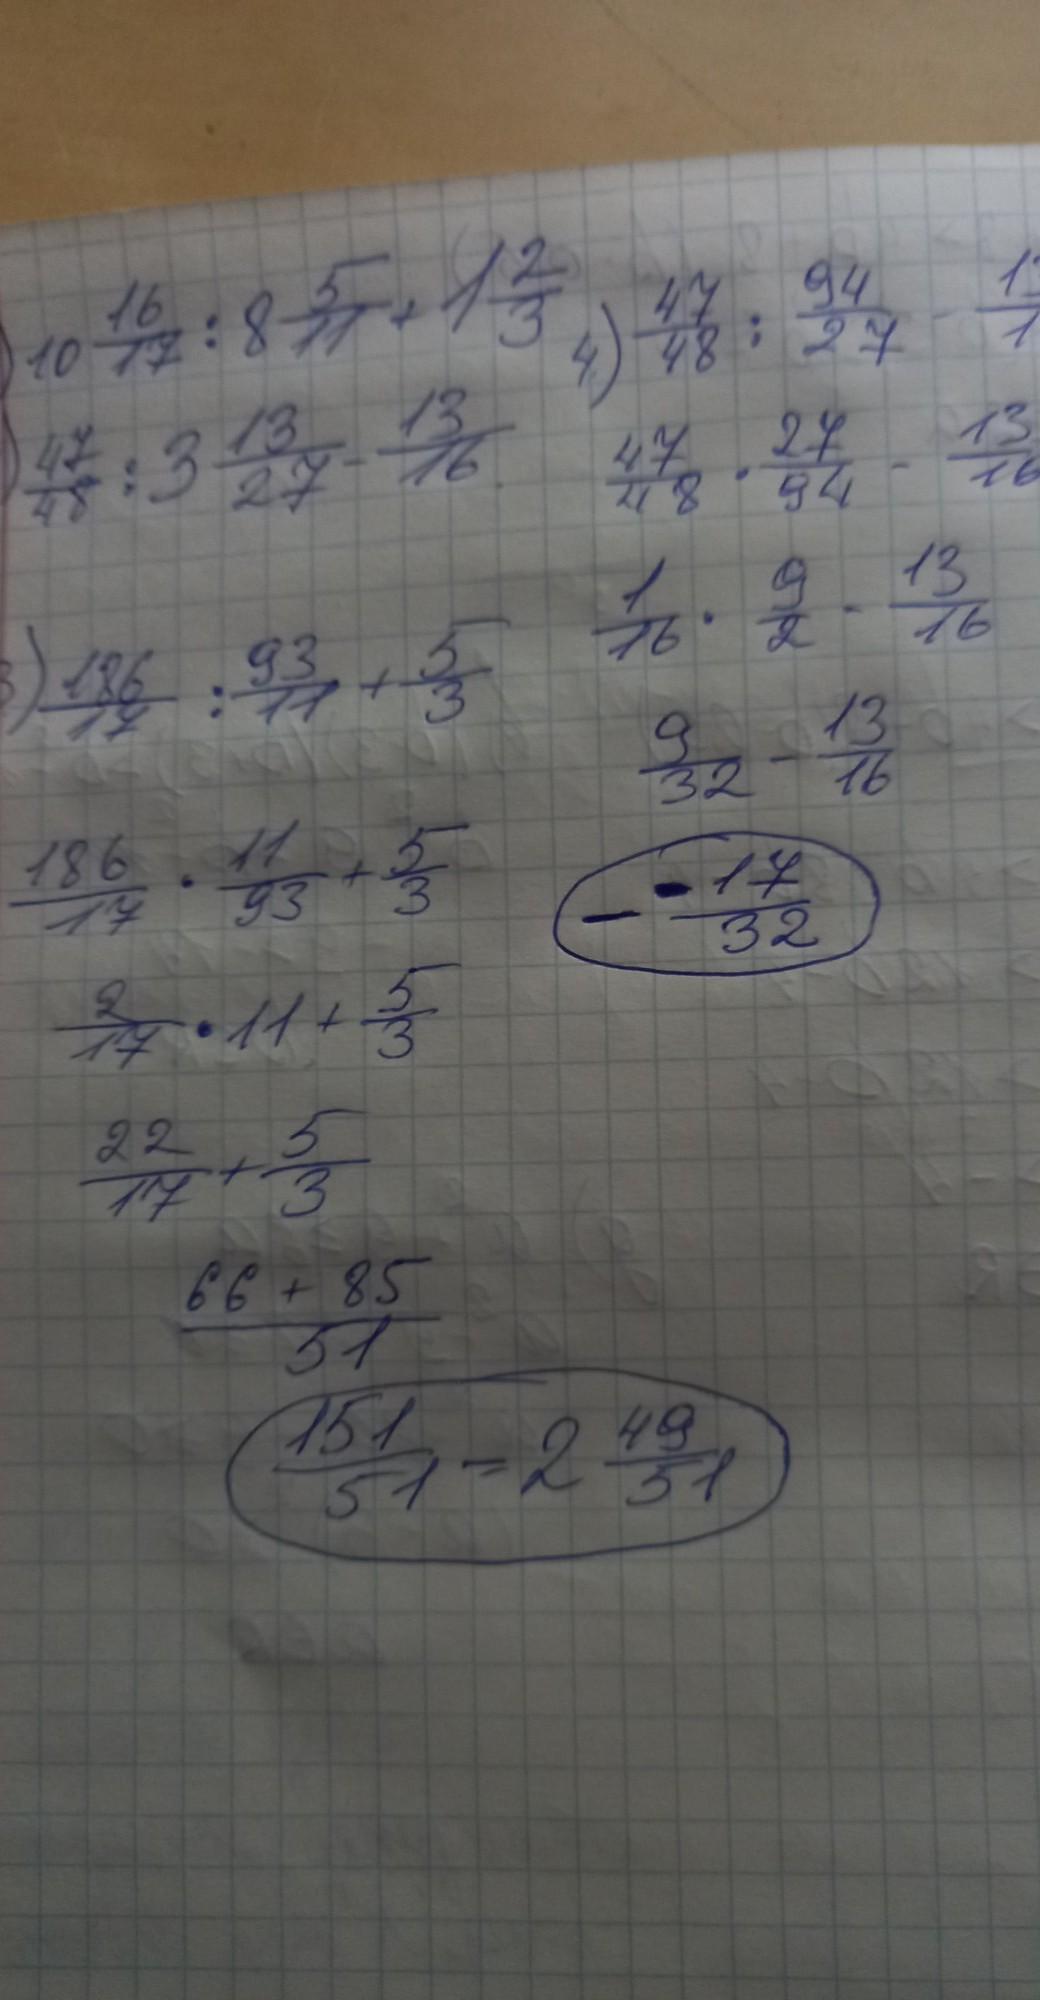 10 16/17 : 8 5/11 + 1 2/3
47/48 : 3 13/27 - 13/16
3) 186/17 : 93/11 + 5/3
186/17 · 11/93 + 5/3
2/17 · 11 + 5/3
22/17 + 5/3
66 + 85/51
151/51 = 2 49/51
4) 47/48 : 94/27 -
47/48 · 27/94 - 13/16
1/16 · 9/2 - 13/16
9/32 - 13/16
- 17/32